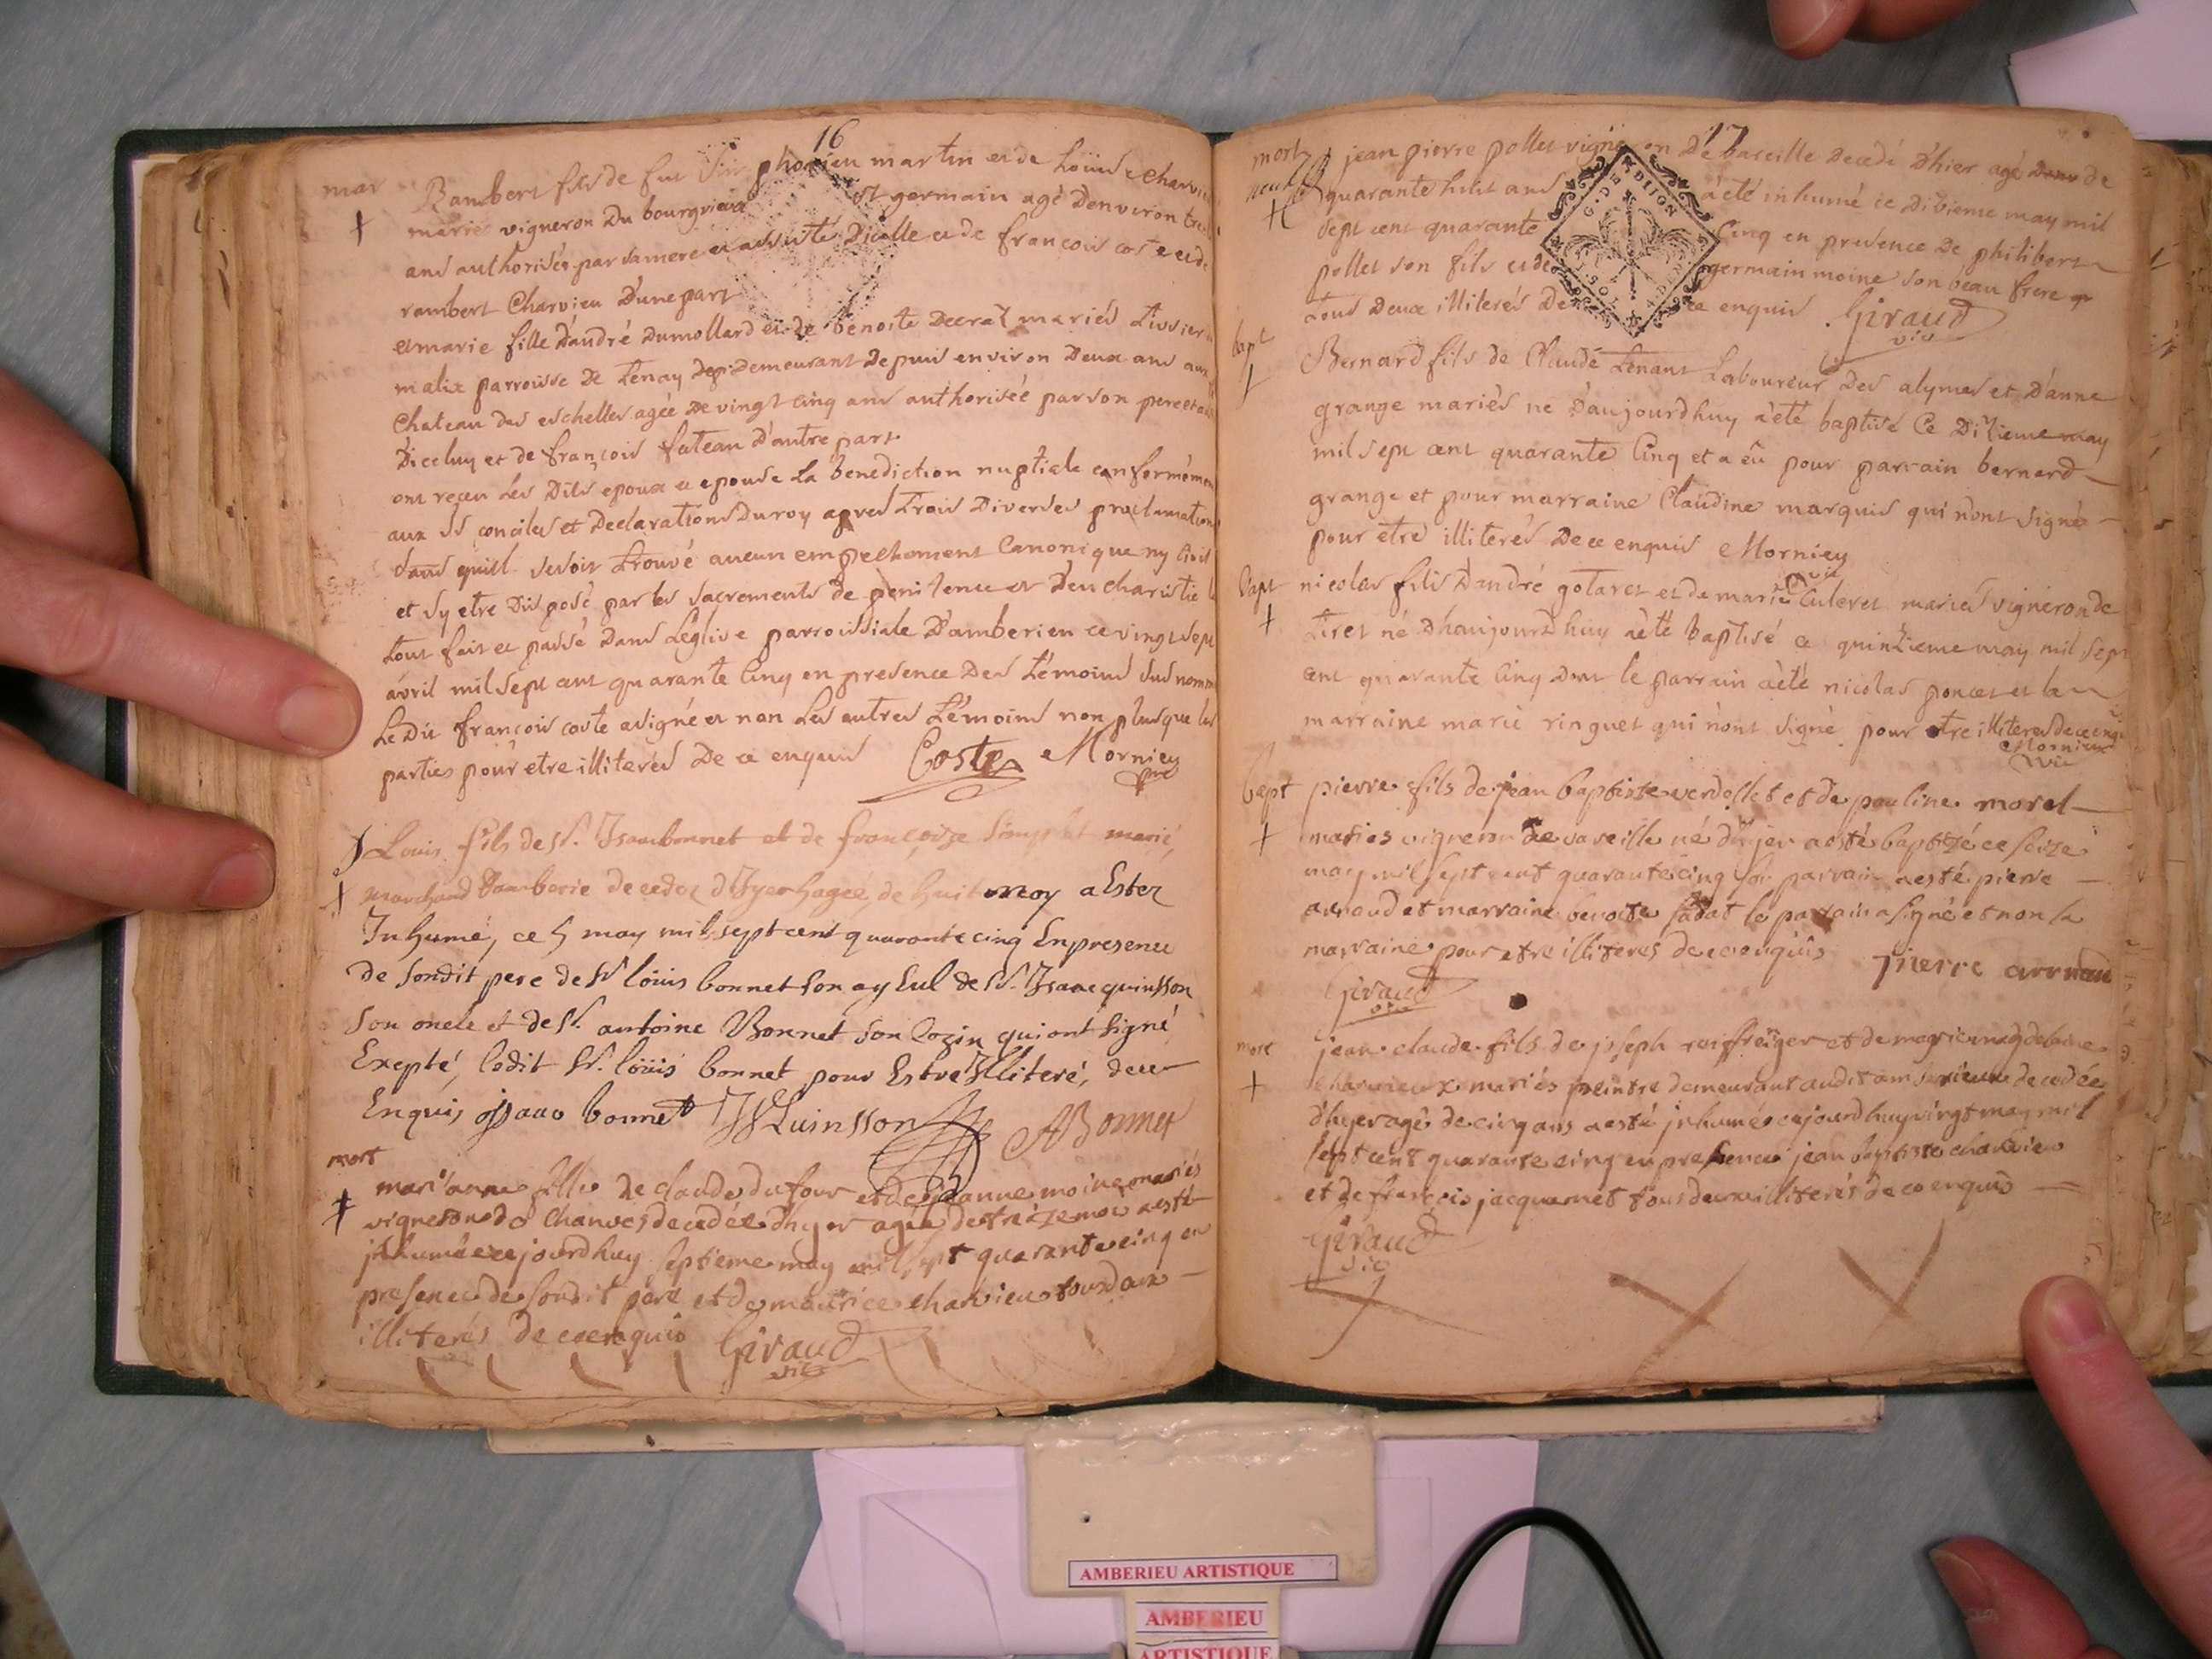 16
mar Rambert fils de fut Simphorien martin et de Louise Charvieu
mariés vigneron du bourgvieux St germain agé denviron
ans authorisés par sa mere et assisté Dicelle et de francois coste et de
rambert Charvieu D'une part
et marie fille d'andré dumollard et de benoite Decrat mariés
malix parroisse de tenay demeurant depuis environ Deux ans au
Chateau des eschelles agée de vingt cinq ans authorisée par son pere et
Diceluy et de francois fateau D'autre part
ont reçeu Les Dits epoux et epouse La benediction nuptiale conformémen
aux SS conciles et Declarations Du roy apres trois Diverses proclamations
sans qu'ill se soit trouvé aucun empechement Canonique ny Civil
et sy etre Disposé par les sacrements de penitence et D'eucharistie le
tout fait et passé Dans L'eglise parroissiale D'amberieu ce vingt sept
avril mil sept cent quarante Cinq en presence Des témoins sus nomm
Le Dit francois coste a signé et non Les autres témoins non plus que les
parties pour etre illiterés De ce enquis Coste Morniey
Louis fils de Sr. Isaac bonnet et de françoise marié,
marchand d'amberie decedez d'hyer hagée, de huit moy a Ester
Inhumé, ce 5 may mil sept cent quarante cinq En presence
de sondit pere de Sr louis bonnet son ayeul de Sr. Isaac quinsson
son oncle et de Sr. antoine Bonnet son cozin qui ont signé
Exepté, ledit Sr. loüis bonnet pour Estre Illiteré, de ce
Enquis isaac bonnet Quinsson ABonnet
mort
mari'anne fille de claude dufour et de jeanne moine mariés
vigneron de Chanves decedée d'hyer agée de treize moi a esté
jnhumée ce jourd'huy septieme may mil sept quarante cinq en
presence de sondit pere et de maurice charvieu tous deux
illiterés de ce enquis Giraud
vic
17
mort jean pierre pollet vigneron De vareille decedé D'hier agé de
quarante huit ans a été inhumé ce Dixieme may mil
sept cent quarante Cinq en presence De philibert
pollet son fils et de germain moine son beau frere
tous Deux illiterés De ce enquis Giraud
vic
bapt Bernard fils de Claude tenant Laboureur Des alymes et D'anne
grange mariés né D'aujourdhuy a été baptisé Ce Dixieme may
mil sept cent quarante Cinq et a êu pour parrain bernard
grange et pour marraine Claudine marquis qui n'ont signé
pour etre illiterés De ce enquis Morniey
vic
bapt nicolas fils D'andré gotaret et de marie Culeret mariés vigneron de
tiret né Dhaujourdhuy a été baptisé ce quinzieme may mil sept
cent quarante Cinq Dont le parrain a été nicolas poncet et la
marraine marie ringuet qui n'ont signé pour etre illiteres de ce enqu
Morniey
vic
bapt pierre fils de jean baptiste verdellet et de pauline morel
mariés vigneron de vareille né d'hyer a esté baptizé ce seize
may mil sept cent quarante cinq son parrain a esté pierre
arnaud et marraine benoite sadat le parrain a signé et non la
marraine pour etre illiteres de ce enquis pierre arnaud
Giraud
vic
mort jean claude fils de joseph et de marie magdelaine
charvieux mariés peintre demeurant audit amberieux decedée
d'hyer agé de cinq ans a esté jnhumé ce jourd'huy vingt may mil
sept cent quarante cinq en presence jean baptiste charvieu
et de francois jacquemet tous deux illiterés de ce enquis
Giraud
vic
G. DE DIJON
AMBERIEU ARTISTIQUE
AMBERIEU
ARTISTIQUE